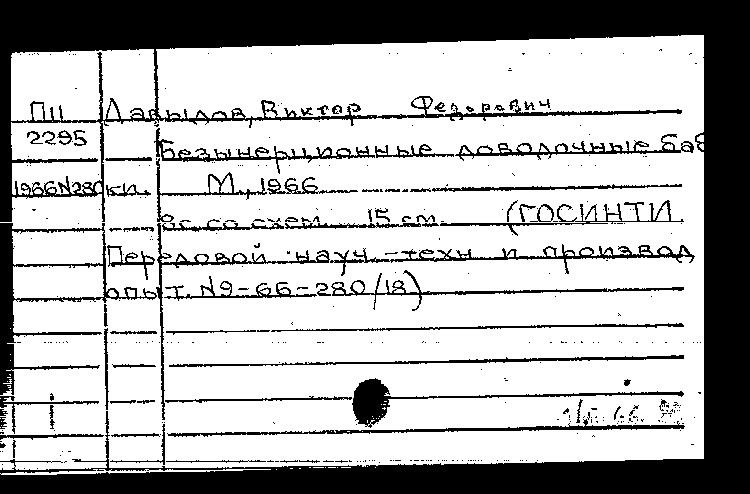 П11 Давыдов, Виктор Федорович
2295
Безынерционные доводочные баб
1966N280 ки. М., 1966
8с. со схем. 15 см. (ГОСИНТИ.
Передовой науч.-техн и производ
опыт. N9-66-280/18)